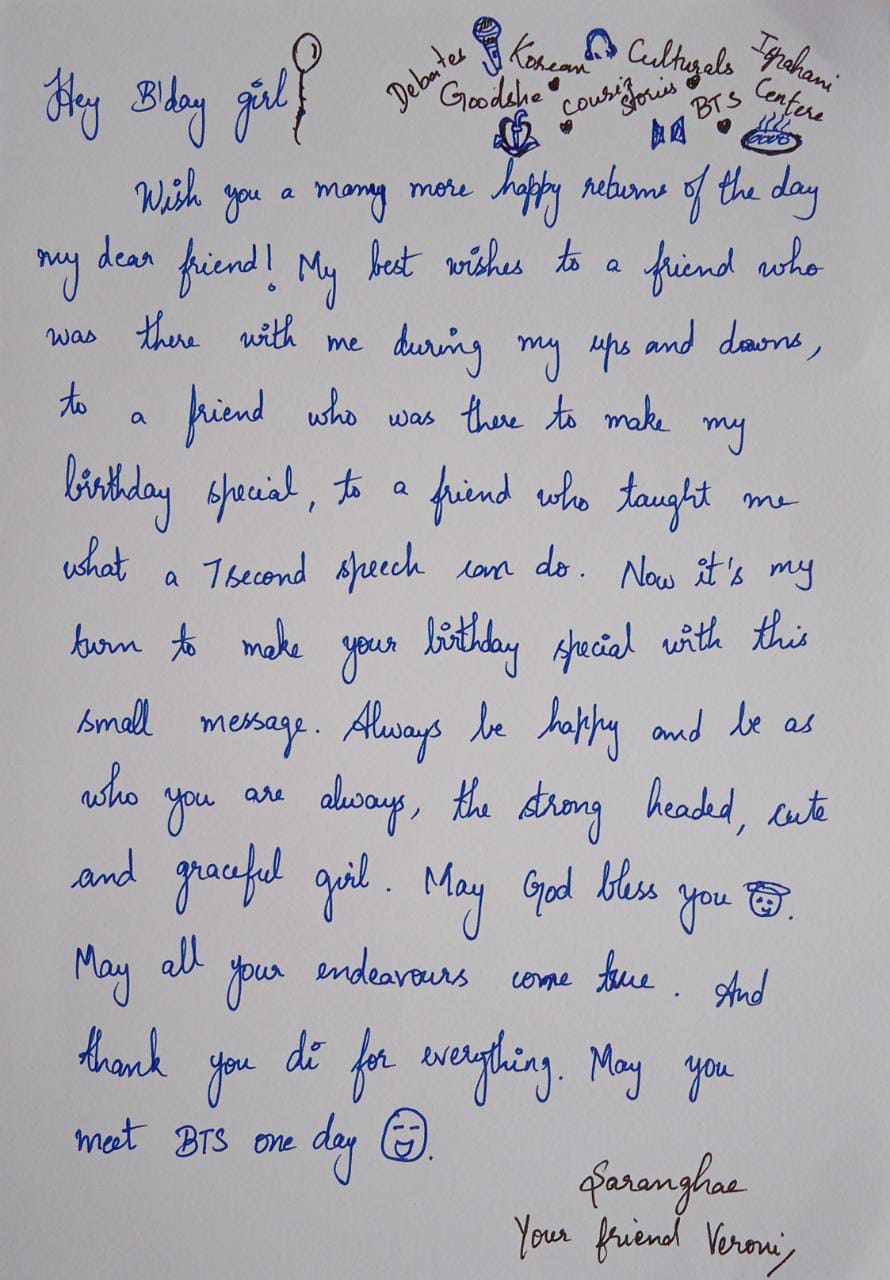 Hey B'day girl
Debates Korean Culturals Igrahani
Goodshe cousin stories BTS Centere
Wish you a many more happy returns of the day
my dear friend! My best wishes to a friend who
was there with me during my ups and downs,
to a friend who was there to make my
birthday special, to a friend who taught me
what a 7second speech can do. Now it's my
turn to make your birthday special with this
small message. Always be happy and be as
who you are always, the strong headed, cute
and graceful girl. May God bless you.
May all your endeavours come true. And
thank you di for everything. May you
meet BTS one day.
Saranghae
Your friend Veroni,